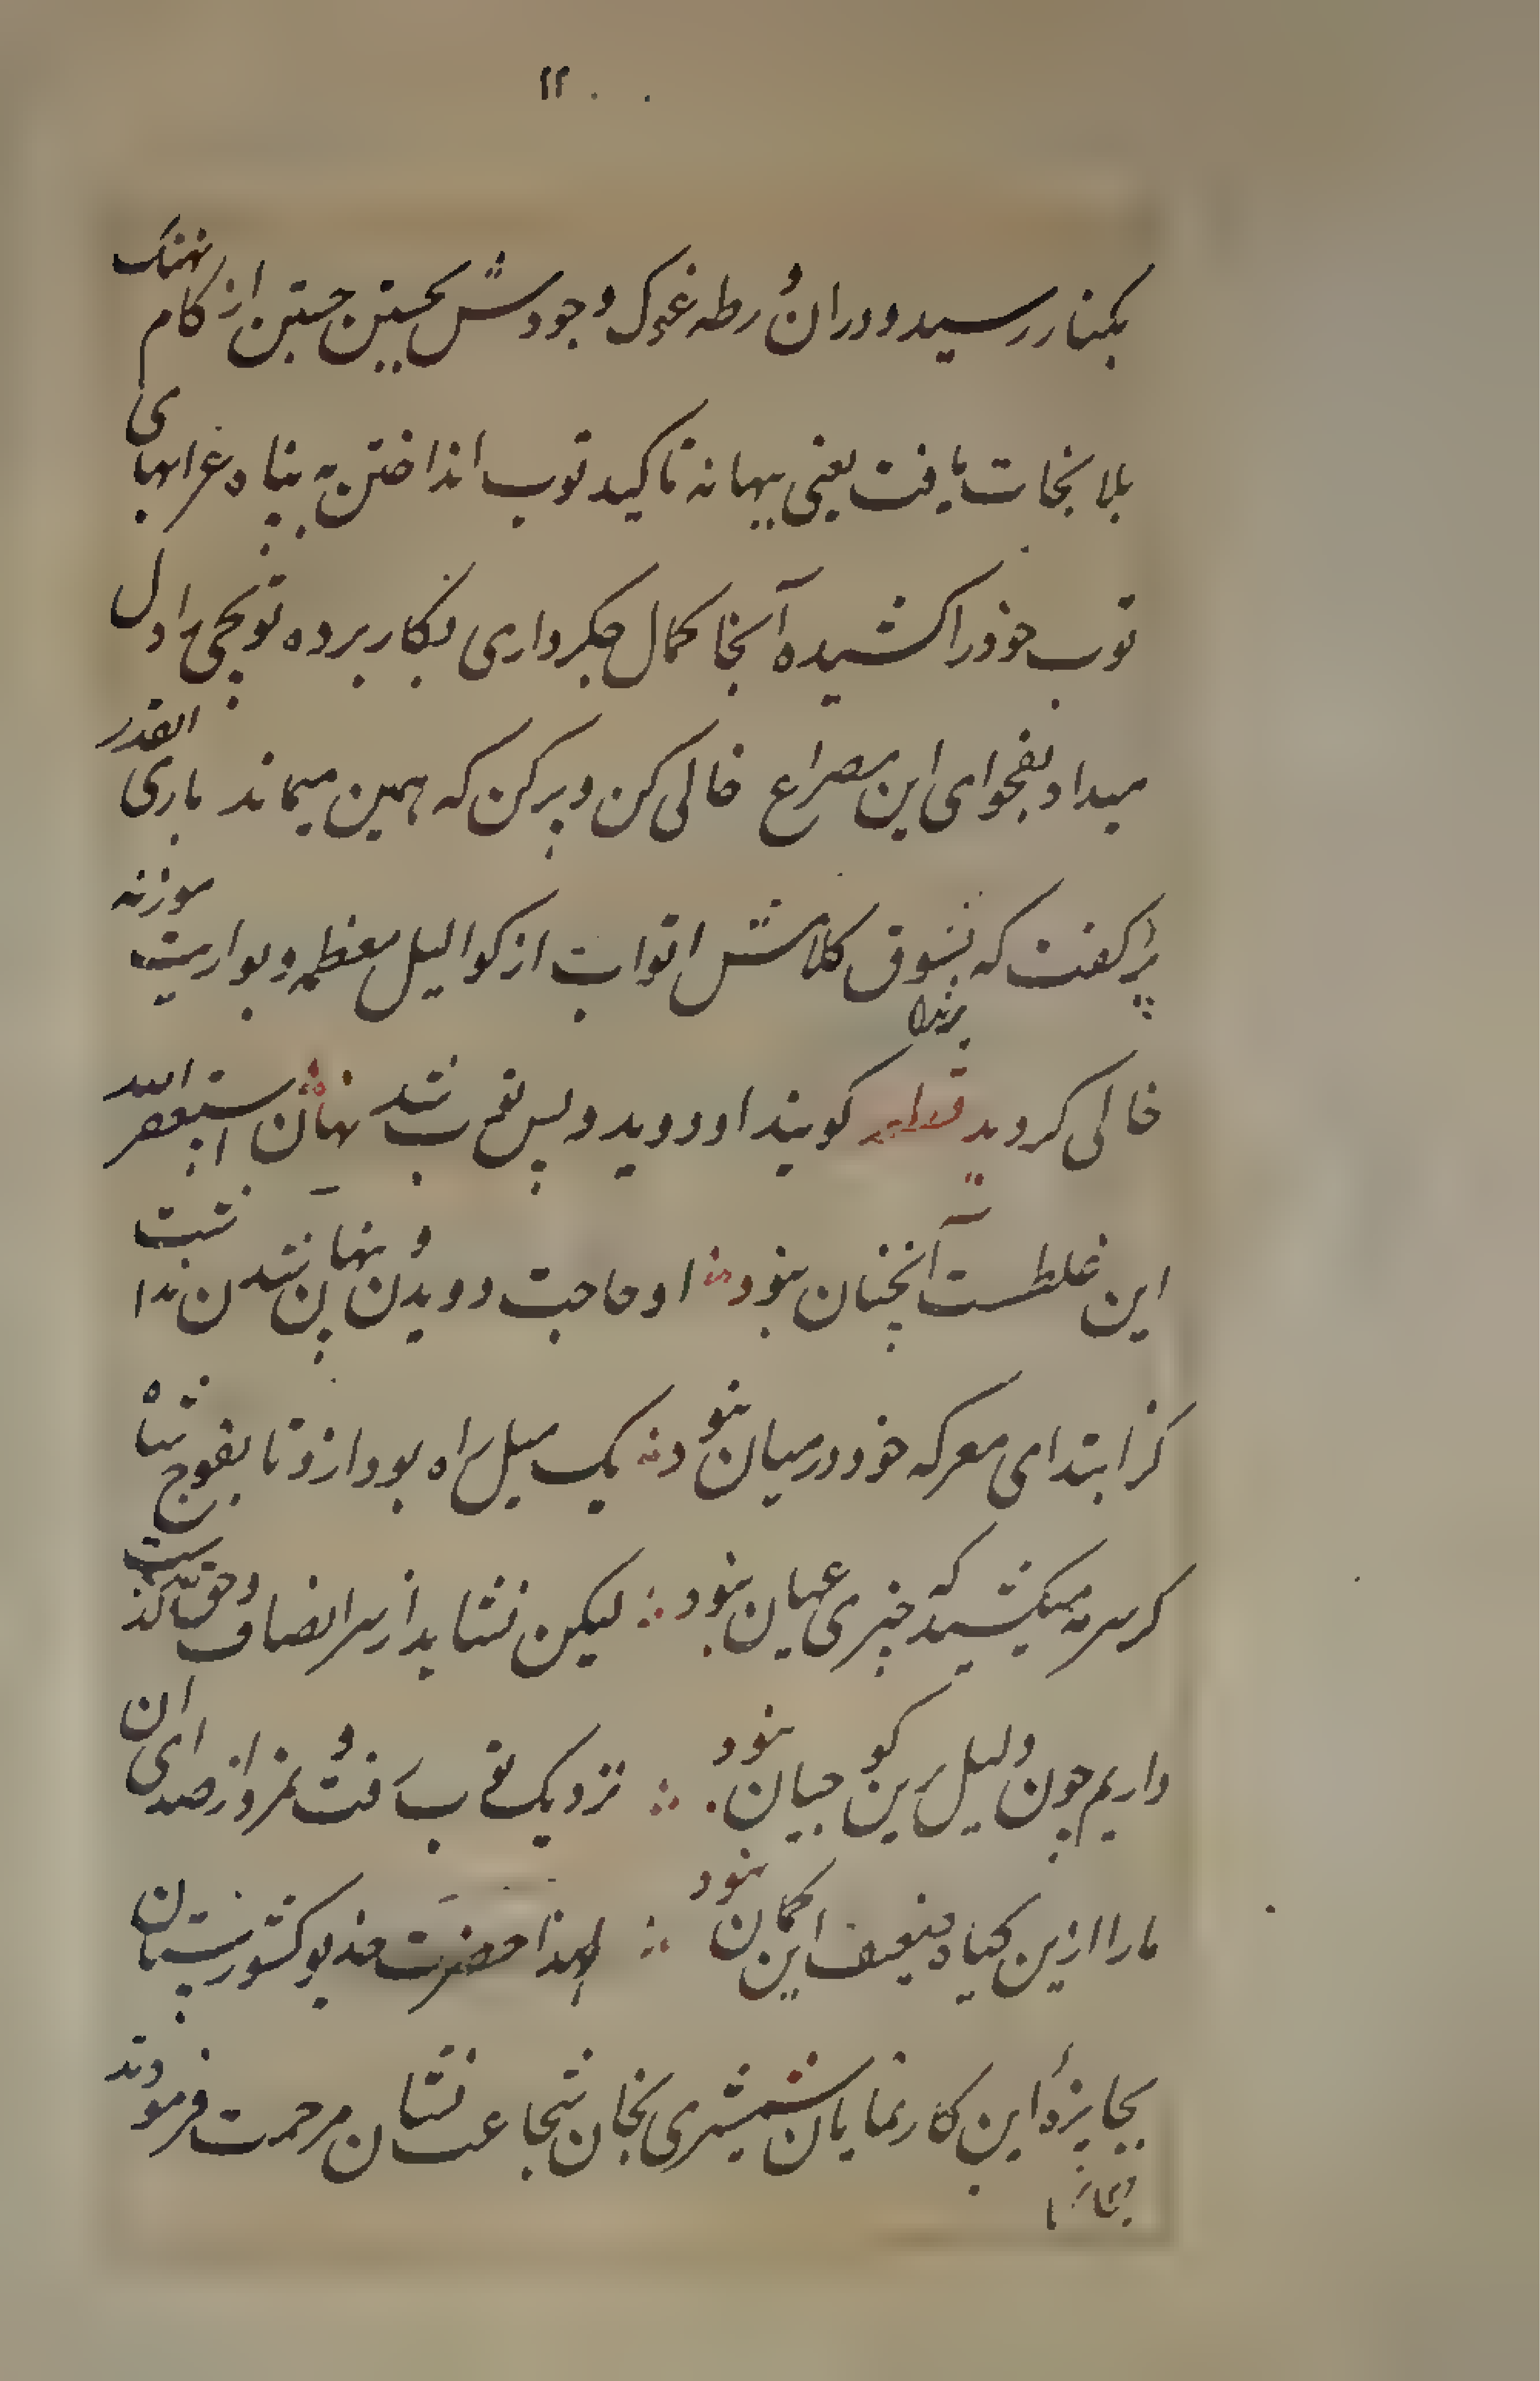 ۱۱
بکنار رسید و دران ورطه غوک وجودش بحیتن جستن از کام نهنک
بلا نجات یافت یعنی ببهانه تاکید توپ انداختن به پناه غرابهای
توپ خود را کشیده آنجا کمال جکرداری بکار برده توپچی را دل
میداد بفحوای این مصراع خالی کن و پر کن که همین میماند باری القدر
پر کفت که بشوق کلامش اتواب از کوالیل معظمه و بواریت موزنه
خالی کردید قطعه کویند او دوید و پس توپ شد نهان استغفر الله
این غلطست آنچنان نبود او حاجت دویدن و پنهان شدن نداشت
کز ابتدای معرکه خود درمیان نبود یک میل راه بود ازو تا بفوج شاه
کر سرمه میکشید که چیزی عیان نبود لیکن نشاید از سر انصاف و حق کذشت
داریم چون دلیل برین کو جبان نبود نزدیک توپ رفت و نمرد از صدای ان
مارا ازین کیاه ضعیف این کمان نبود لهذا حضرت خدیو کشورستان
بجایزهٔ این کار نمایان شمشیری بخان شجاعت نشان مرحمت فرمودند